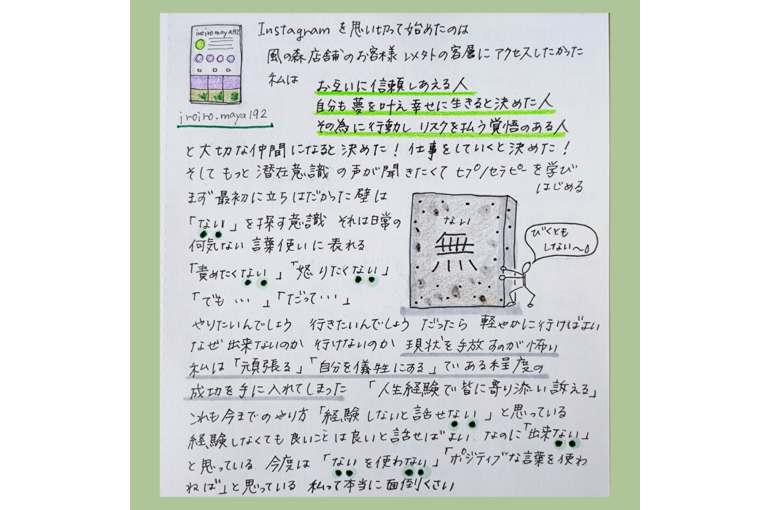 iroiro.maya192
Instagram を思い切って始めたのは
風の森店舗のお客様 レメトタの客層にアクセスしたかった
私は お互いに信頼しあえる人
自分も夢を叶え幸せに生きると決めた人
その為に行動し リスクを払う覚悟のある人
iroiro.maya192
と大切な仲間になると決めた！仕事をしていくと決めた！
そしてもっと潜在意識の声が聞きたくて ヒプノセラピーを学び
はじめる
まず最初に立ちはだかった壁は
「ない」を探す意識 それは日常の
何気ない言葉使いに表れる
「責めたくない」「怒りたくない」
「でも・・・」「だって・・・」
ない
無
びくとも
しない〜
やりたいんでしょう 行きたいんでしょう だったら 軽やかに行けばよい
なぜ出来ないのか 行けないのか 現状を手放すのが怖い
私は「頑張る」「自分を儀牲にする」である程度の
成功を手に入れてしまった 「人生経験で皆に寄り添い訴える」
これも今までのやり方「経験しないと話せない」と思っている
経験しなくても良いことは良いと話せばよい なのに「出来ない」
と思っている 今度は「ないを使わない」「ポジティブな言葉を使わ
ねば」と思っている 私って本当に面倒くさい